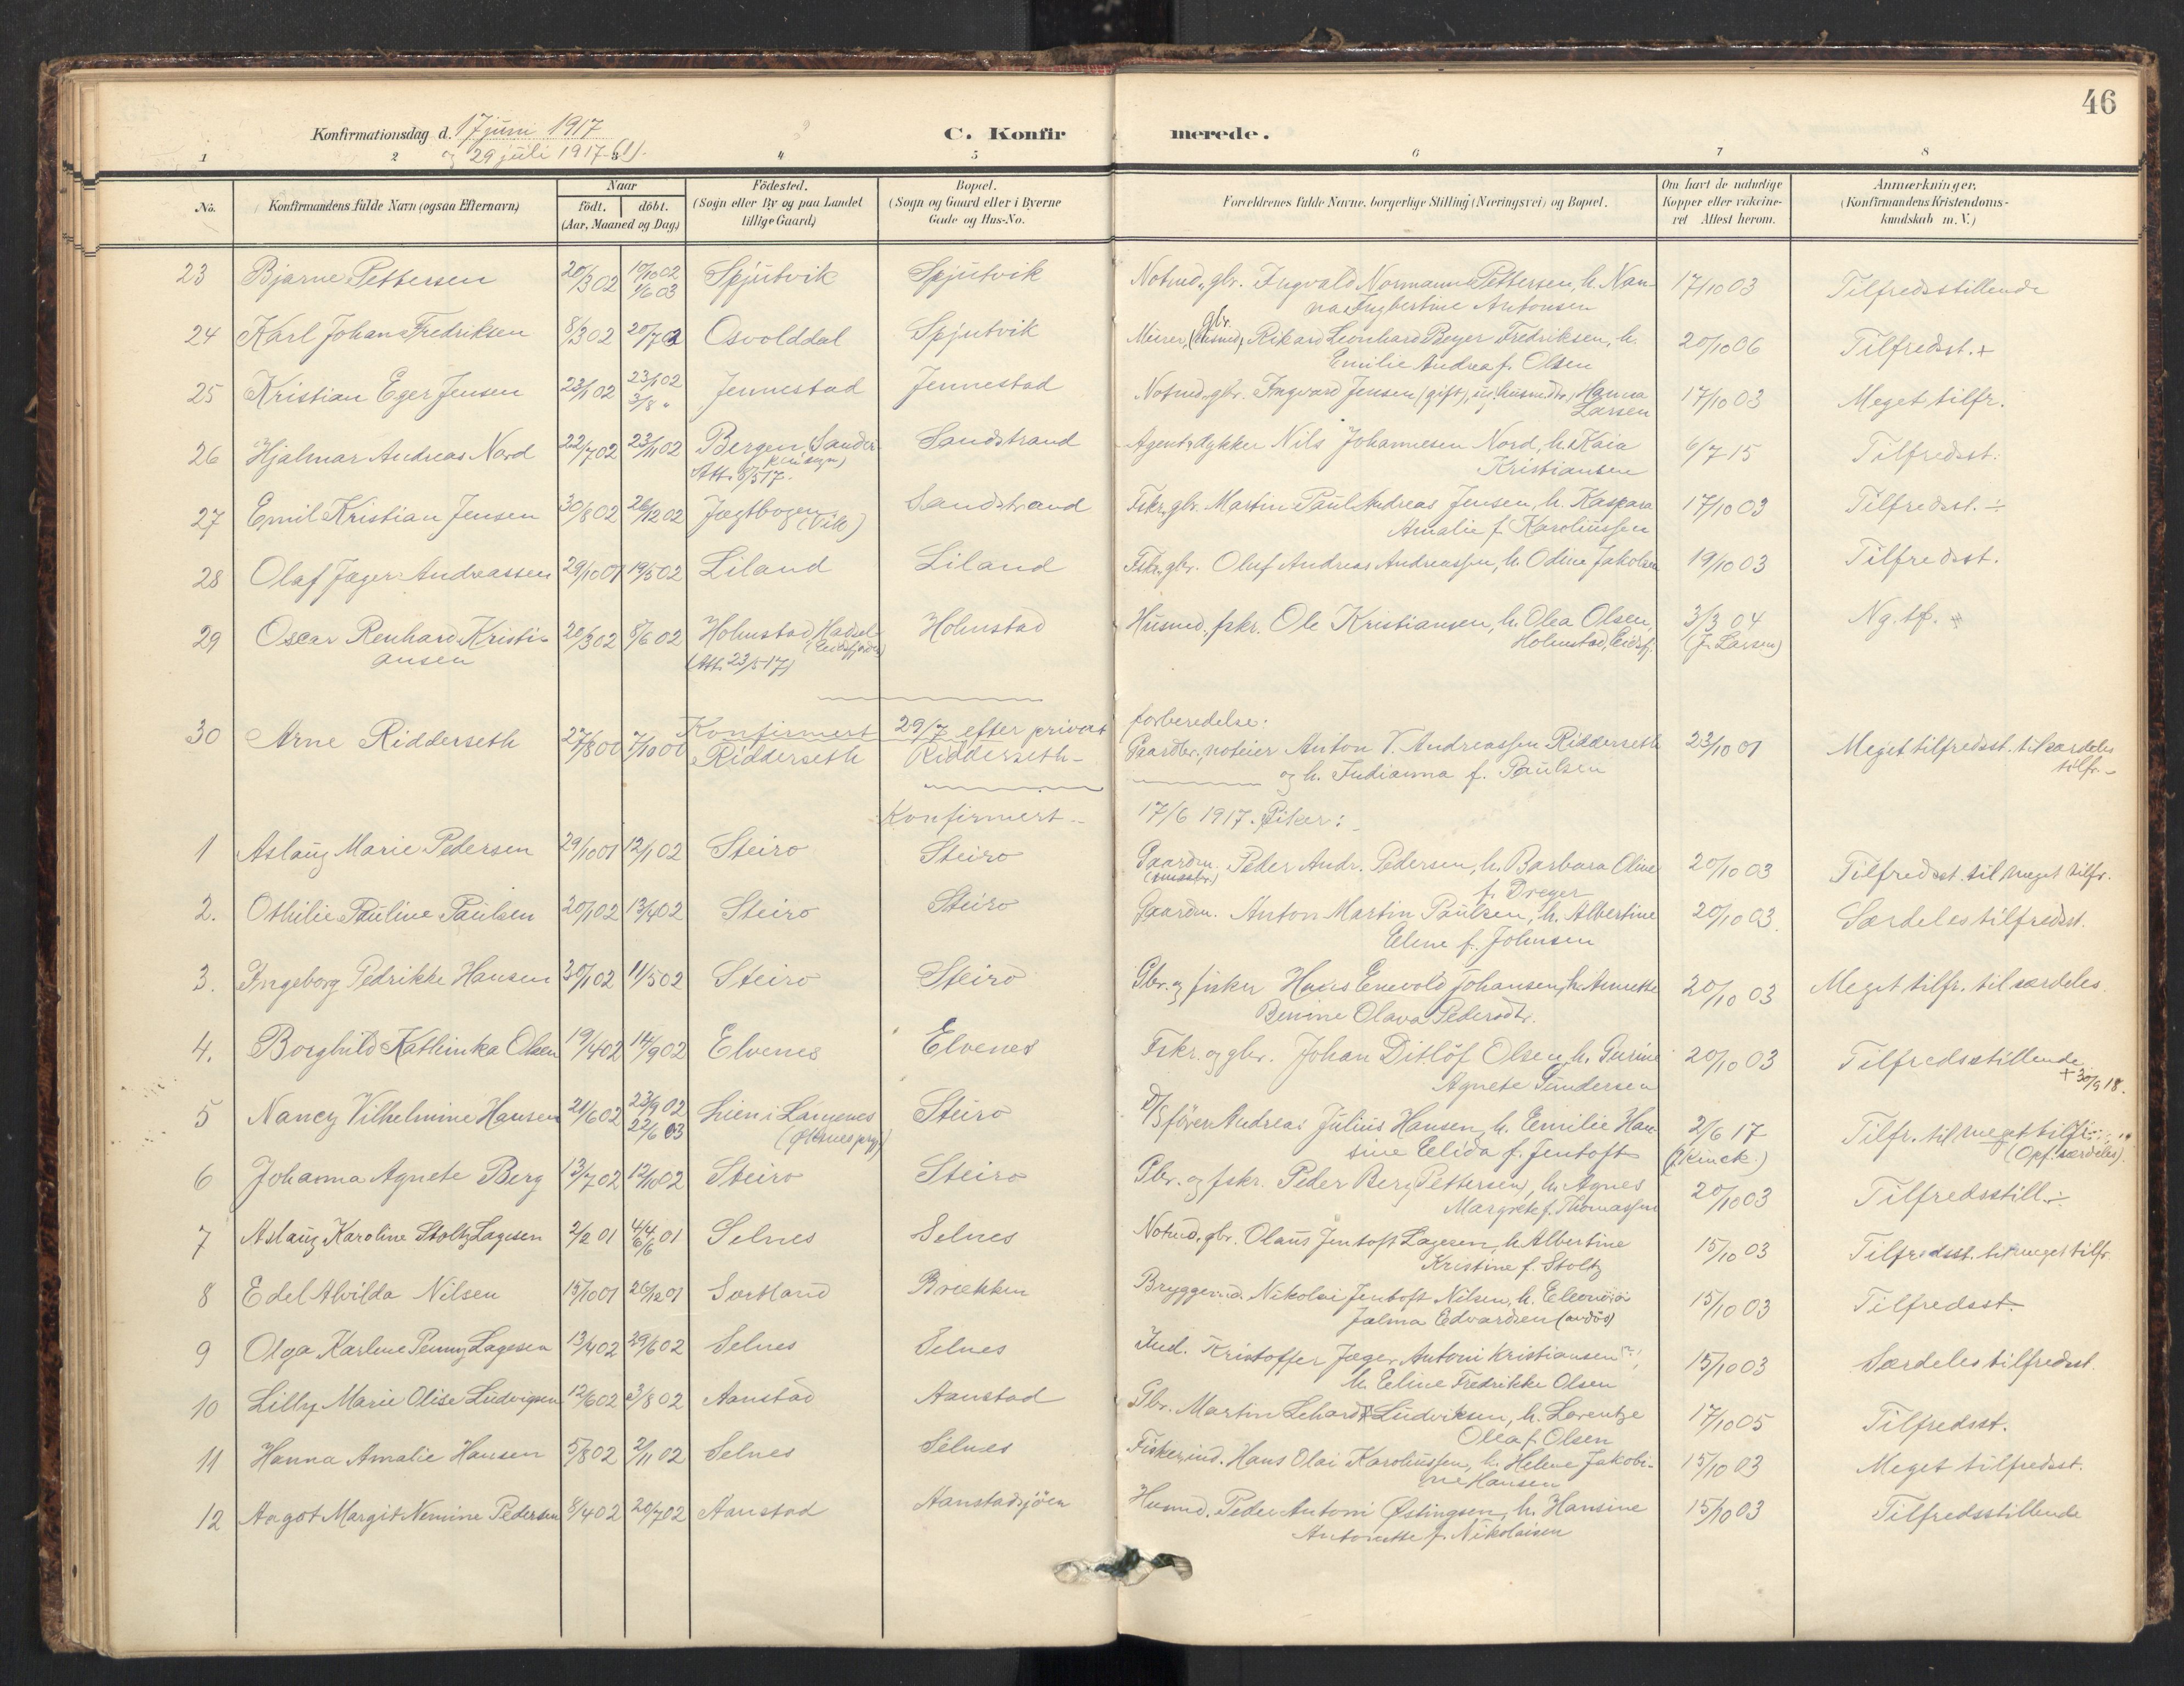 46
Konfirmationsdag d. 17 juni 1917 C. Konfirmerede.
og 29 juli 1917 (1).
1 2 3 4 5 6 7 8
No. Konfirmandens fulde Navn (ogsaa Efternavn) Naar födt. döbt. (Aar, Maaned og Dag) Födested. (Sogn eller By og paa Landet tillige Gaard) Bopæl. (Sogn og Gaard eller i Byerne Gade og Hus-No. Forældrenes fulde Navne, borgerlige Stilling (Næringsvei) og Bopæl. Om havt de naturlige Kopper eller vakcineret Attest herom. Anmærkninger. (Konfirmandens Kristendomskundskab m. V.)
23 Bjarne Pettersen 20/3 02 10/10 02 Spjutvik Spjutvik Notmd., gbr. Ingvald Normann Pettersen, h. Nan- 17/10 03 Tilfredsstillende
1/6 03 na Ingbertine Antonsen
24 Karl Johan Fredriksen 8/3 02 20/7 02 Osvolddal Spjutvik Murer, (husmd) gbr. Rikard Leonhard Beyer Fredriksen, h. 20/10 06 Tilfredsst. +
Emilie Andrea f. Olsen
25 Kristian Eger Jensen 23/1 02 23/1 02 Jennestad Jennestad Notmd., gbr. Ingvard Jensen (gift), ug. husmdtr. Hanna 17/10 03 Meget tilfr.
3/8 " Larsen
26 Hjalmar Andreas Nord 22/7 02 23/11 02 Bergen (Sandvi- Sandstrand Agent, dykker Nils Johannesen Nord, h. Kaia 6/7 15 Tilfredsst.
ken sogn) Kristiansen
Att. 8/5 17.
27 Emil Kristian Jensen 30/8 02 26/12 02 Jægtbogen Sandstrand Fskr., gbr. Martin Paul Andreas Jensen, h. Kaspara 17/10 03 Tilfredsst. ÷
(Vik) Amalie f. Karoliussen
28 Olaf Jæger Andreassen 29/10 01 19/5 02 Liland Liland Fskr., gbr. Oluf Andreas Andreassen, h. Odine Jakobsen 19/10 03 Tilfredsst.
29 Oscar Renhard Kristi- 20/3 02 8/6 02 Holmstad, Hadsel Holmstad Husmd., fskr. Ole Kristiansen, h. Olea Olsen, 3/3 04 Ng. tf.
ansen (Eidsfjord) Holmstad, Eidsfj. (J. Larsen)
(Att. 23/5-17)
Konfirmert 29/7 efter privat forberedelse:
30 Arne Ridderseth 27/8 00 7/10 00 Ridderseth Ridderseth Gaardbr., noteier Anton V. Andreassen Ridderseth 23/10 01 Meget tilfredsst. til særdeles
og h. Indianna f. Paulsen tilfr.
Konfirmert 17/6 1917. Piker:
1 Aslaug Marie Pedersen 29/10 01 12/1 02 Steiro Steiro Gaardm. Peder Andr. Pedersen, h. Barbara Oline 20/10 03 Tilfredsst. til meget tilfr.
f. Dreyer
2. Othilie Pauline Paulsen 20/1 02 13/4 02 Steiro Steiro Gaardm. Anton Martin Paulsen, h. Albertine 20/10 03. Særdeles tilfredsst.
Elene f. Johnsen
3. Ingeborg Pedrikke Hansen 30/1 02 11/5 02 Steiro Steiro Gbr. og fisker Hans Enevold Johansen, h. Annette 20/10 03 Meget tilfr. til særdeles.
Benine Olava Pedersdtr.
4. Borghild Kathinka Olsen 19/4 02 14/9 02 Elvenes Elvenes Fskr. og gbr. Johan Ditlöf Olsen, h. Gurine 20/10 03 Tilfredsstillende
Agnete Gundersen + 30/9 18.
5 Nancy Vilhelmine Hansen 21/6 02 23/9 02 Lien i Langenes Steiro D/S förer Andreas Julius Hansen, h. Emilie Han- 2/6 17 Tilfr. til meget tilfr.
22/6 03 (Øksnes prgj.) sine Elida f. Jentoft (J. Kinck.) (Opf. særdeles).
6 Johanna Agnete Berg 13/7 02 12/10 02 Steiro Steiro Gbr. og fskr. Peder Berg Pettersen, h. Agnes 20/10 03 Tilfredsstill. ÷
Margrete f. Thomassen
7 Aslaug Karoline Stoltz Lagesen 2/2 01 4/4 01 Selnes Selnes Notmd., gbr. Olaus Jentoft Lagesen, h. Albertine 15/10 03 Tilfredsst. til meget tilfr.
6/6 Kristine f. Stoltz
8 Edel Alvilda Nilsen 15/10 01 26/12 01 Sortland Brækken Bryggemd. Nikolai Jentoft Nilsen, h. Eleonora 15/10 03 Tilfredsst.
Jalma Edvardsen (avdöd)
9 Olga Karlene Penny Lagesen 13/4 02 29/6 02 Selnes Selnes Ind. Kristoffer Jæger Antoni Kristiansen, 15/10 03 Særdeles tilfredsst.
h. Eline Fredrikke Olsen
10 Lilly Marie Olise Ludvigsen 12/6 02 3/8 02 Aanstad Aanstad Gbr. Martin Lehard Ludviksen, h. Lorentze 17/10 05 Tilfredsst.
Olea f. Olsen
11 Hanna Amalie Hansen 5/8 02 2/11 02 Selnes Selnes Fisker, ind. Hans Olai Karoliussen, h. Helene Jakobi- 15/10 03 Meget tilfredsst.
ne Hansen
12 Aagot Margit Nemine Pedersen 8/4 02 20/7 02 Aanstad Aanstadsjöen Husmd. Peder Antoni Østingsen, h. Hansine 15/10 03 Tilfredsstillende
Antonette f. Nikolaisen